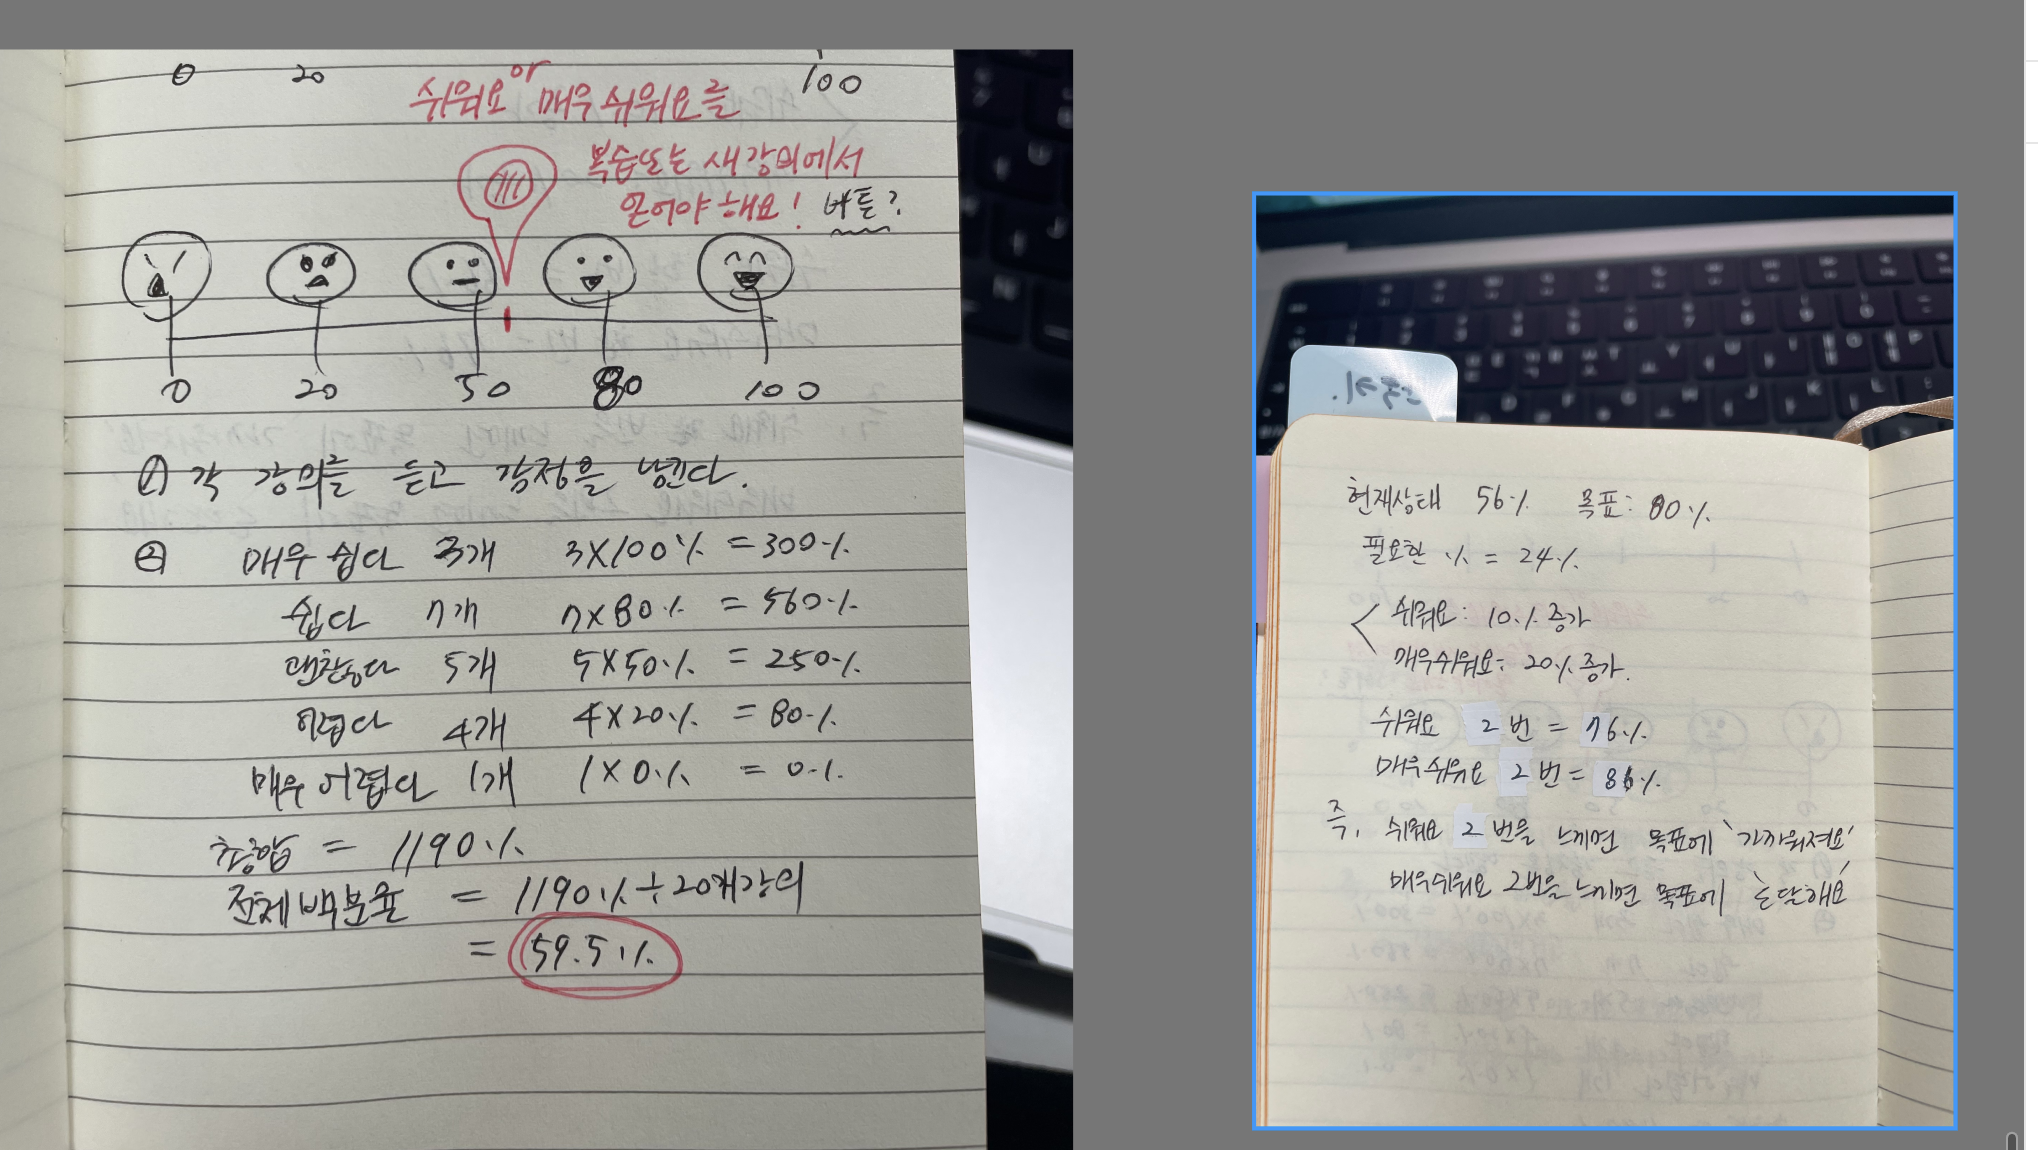 0 20 100
쉬워요 or 매우쉬워요를
복습또는 새강의에서
얻어야해요! 버튼?
0 20 50 80 100
① 각 강의를 듣고 감정을 남긴다.
② 매우 쉽다 3개 3×100% = 300%
쉽다 7개 7×80% = 560%
괜찮다 5개 5×50% = 250%
어렵다 4개 4×20% = 80%
매우 어렵다 1개 1×0% = 0%
총합 = 1190%
전체 백분율 = 1190% ÷ 20개강의
= 59.5%
현재상태 56% 목표: 80%
필요한 % = 24%
쉬워요: 10% 증가
매우쉬워요: 20% 증가.
쉬워요 2번 = 76%
매우쉬워요 2번 = 86%
즉, 쉬워요 2번을 느끼면 목표에 '가까워져요'
매우쉬워요 2번을 느끼면 목표에 '도달해요'